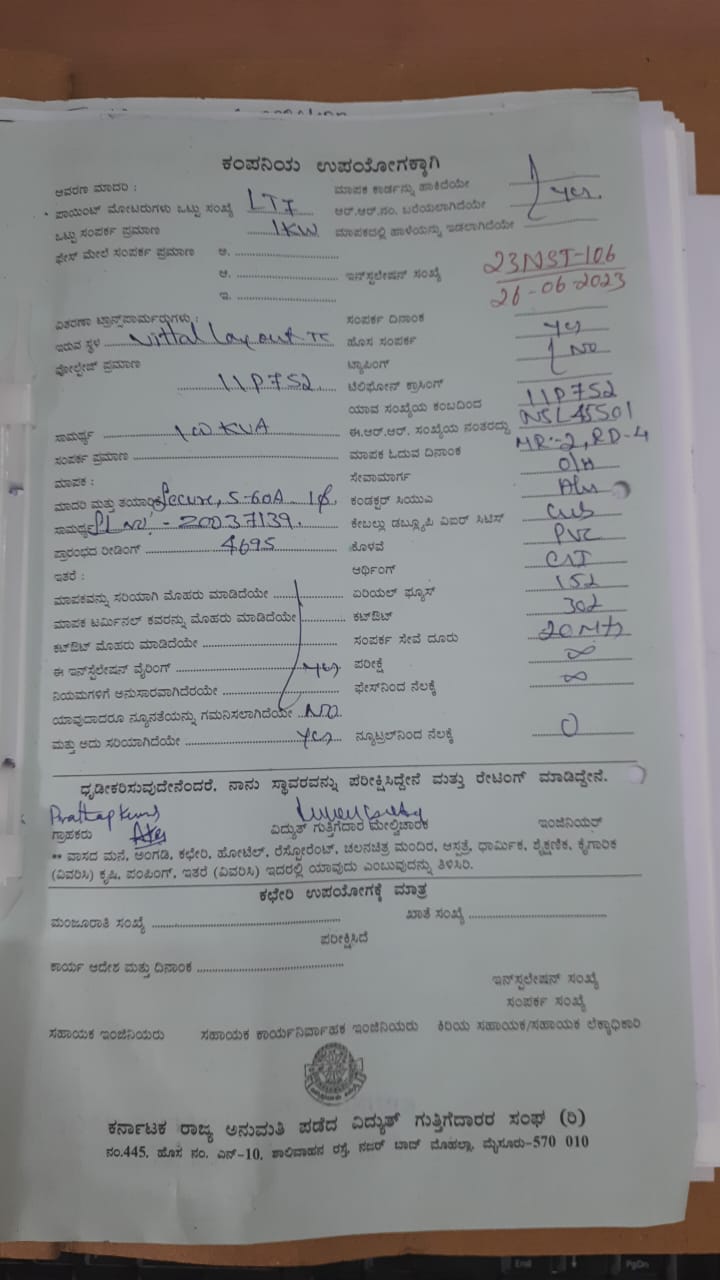 ಕಂಪನಿಯ ಉಪಯೋಗಕ್ಕಾಗಿ
ಆವರಣ ಮಾದರಿ : ಮಾಪಕ ಕಾರ್ಡನ್ನು ಹಾಕಿದೆಯೇ
ಪಾಯಿಂಟ್ ಮೋಟರುಗಳು ಒಟ್ಟು ಸಂಖ್ಯೆ LT7 ಆರ್.ಆರ್.ನಂ. ಬರೆಯಲಾಗಿದೆಯೇ yes.
ಒಟ್ಟು ಸಂಪರ್ಕ ಪ್ರಮಾಣ 1KW ಮಾಪಕದಲ್ಲಿ ಹಾಳೆಯನ್ನು ಇಡಲಾಗಿದೆಯೇ
ಫೇಸ್ ಮೇಲೆ ಸಂಪರ್ಕ ಪ್ರಮಾಣ ಅ.
ಆ. ಇನ್‌ಸ್ಟಲೇಷನ್ ಸಂಖ್ಯೆ 23NST-106
ಇ. 26-06-2023
ವಿತರಣಾ ಟ್ರಾನ್ಸ್‌ಪಾರ್ಮರುಗಳು : ಸಂಪರ್ಕ ದಿನಾಂಕ
ಇರುವ ಸ್ಥಳ Vittal Layout TC ಹೊಸ ಸಂಪರ್ಕ yes
ವೋಲ್ಟೇಜ್ ಪ್ರಮಾಣ ಟ್ಯಾಪಿಂಗ್ NO
11P752 ಟೆಲಿಫೋನ್ ಕ್ರಾಸಿಂಗ್
ಯಾವ ಸಂಖ್ಯೆಯ ಕಂಬದಿಂದ 11P752
ಸಾಮರ್ಥ್ಯ 100 KVA ಈ.ಆರ್.ಆರ್. ಸಂಖ್ಯೆಯ ನಂತರದ್ದು NSL45501
ಸಂಪರ್ಕ ಪ್ರಮಾಣ ಮಾಪಕ ಓದುವ ದಿನಾಂಕ MR:-2, RD-4
ಮಾಪಕ : ಸೇವಾಮಾರ್ಗ O/H
ಮಾದರಿ ಮತ್ತು ತಯಾರಿಕೆ Secure, 5-60A 1ϕ ಕಂಡಕ್ಟರ್ ಸಿಯುಎ Alu
ಸಾಮರ್ಥ್ಯ Sl No: - 20037139. ಕೇಬಲ್ಲು ಡಬ್ಲ್ಯೂಪಿ ವಿಐರ್ ಸಿಟಿಸ್
ಪ್ರಾರಂಭದ ರೀಡಿಂಗ್ 4695 ಕೊಳವೆ PVC
ಇತರೆ : ಆರ್ಥಿಂಗ್
ಮಾಪಕವನ್ನು ಸರಿಯಾಗಿ ಮೊಹರು ಮಾಡಿದೆಯೇ ಏರಿಯೆಲ್ ಫ್ಯೂಸ್ 152
ಮಾಪಕ ಟರ್ಮಿನಲ್ ಕವರನ್ನು ಮೊಹರು ಮಾಡಿದೆಯೇ ಕಟ್‌ಔಟ್ 302
ಕಟ್‌ಔಟ್ ಮೊಹರು ಮಾಡಿದೆಯೇ ಸಂಪರ್ಕ ಸೇವೆ ದೂರು 20 Mts
ಈ ಇನ್‌ಸ್ಟಲೇಷನ್ ವೈರಿಂಗ್ yes ಪರೀಕ್ಷೆ ∞
ನಿಯಮಗಳಿಗೆ ಅನುಸಾರವಾಗಿದೆರಯೇ ಫೇಸ್‌ನಿಂದ ನೆಲಕ್ಕೆ ∞
ಯಾವುದಾದರೂ ನ್ಯೂನತೆಯನ್ನು ಗಮನಿಸಲಾಗಿದೆಯೇ NO.
ಮತ್ತು ಅದು ಸರಿಯಾಗಿದೆಯೇ yes ನ್ಯೂಟ್ರಲ್‌ನಿಂದ ನೆಲಕ್ಕೆ 0
ಧೃಡೀಕರಿಸುವುದೇನೆಂದರೆ, ನಾನು ಸ್ಥಾವರವನ್ನು ಪರೀಕ್ಷಿಸಿದ್ದೇನೆ ಮತ್ತು ರೇಟಿಂಗ್ ಮಾಡಿದ್ದೇನೆ.
ಗ್ರಾಹಕರು ವಿದ್ಯುತ್ ಗುತ್ತಿಗೆದಾರ ಮೇಲ್ವಿಚಾರಕ ಇಂಜಿನಿಯರ್
** ವಾಸದ ಮನೆ, ಅಂಗಡಿ, ಕಛೇರಿ, ಹೋಟೆಲ್, ರೆಸ್ಟೋರೆಂಟ್, ಚಲನಚಿತ್ರ ಮಂದಿರ, ಆಸ್ಪತ್ರೆ, ಧಾರ್ಮಿಕ, ಶೈಕ್ಷಣಿಕ, ಕೈಗಾರಿಕ
(ವಿವರಿಸಿ) ಕೃಷಿ, ಪಂಪಿಂಗ್, ಇತರೆ (ವಿವರಿಸಿ) ಇದರಲ್ಲಿ ಯಾವುದು ಎಂಬುವುದನ್ನು ತಿಳಿಸಿರಿ.
ಕಛೇರಿ ಉಪಯೋಗಕ್ಕೆ ಮಾತ್ರ
ಮಂಜೂರಾತಿ ಸಂಖ್ಯೆ ಖಾತೆ ಸಂಖ್ಯೆ
ಪರೀಕ್ಷಿಸಿದೆ
ಕಾರ್ಯ ಆದೇಶ ಮತ್ತು ದಿನಾಂಕ
ಇನ್‌ಸ್ಟಲೇಷನ್ ಸಂಖ್ಯೆ
ಸಂಪರ್ಕ ಸಂಖ್ಯೆ
ಸಹಾಯಕ ಇಂಜಿನಿಯರು ಸಹಾಯಕ ಕಾರ್ಯನಿರ್ವಾಹಕ ಇಂಜಿನಿಯರು ಕಿರಿಯ ಸಹಾಯಕ/ಸಹಾಯಕ ಲೆಕ್ಕಾಧಿಕಾರಿ
ಕರ್ನಾಟಕ ರಾಜ್ಯ ಅನುಮತಿ ಪಡೆದ ವಿದ್ಯುತ್ ಗುತ್ತಿಗೆದಾರರ ಸಂಘ (ರಿ)
ನಂ.445, ಹೊಸ ನಂ. ಎನ್-10, ಶಾಲಿವಾಹನ ರಸ್ತೆ, ನಜರ್ ಬಾದ್ ಮೊಹಲ್ಲಾ, ಮೈಸೂರು-570 010